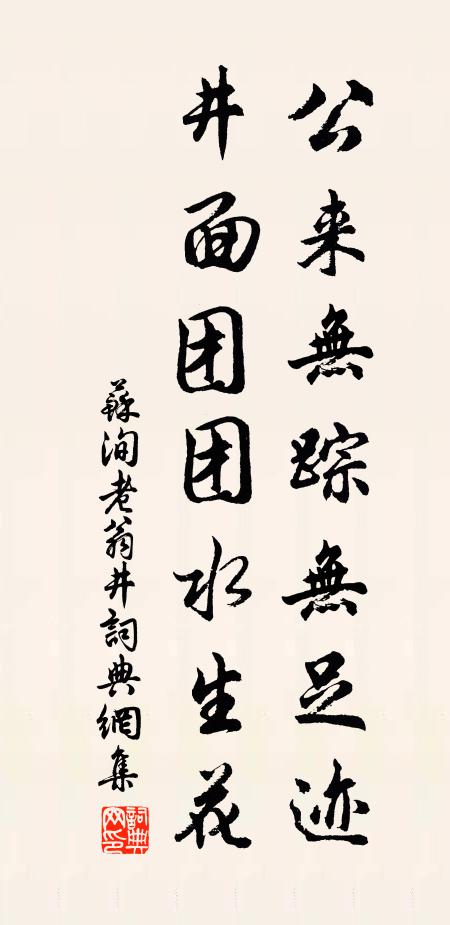 公来無踪無足迹
井面团团水生花
蘇洵老翁井詞典網集
詞典網印